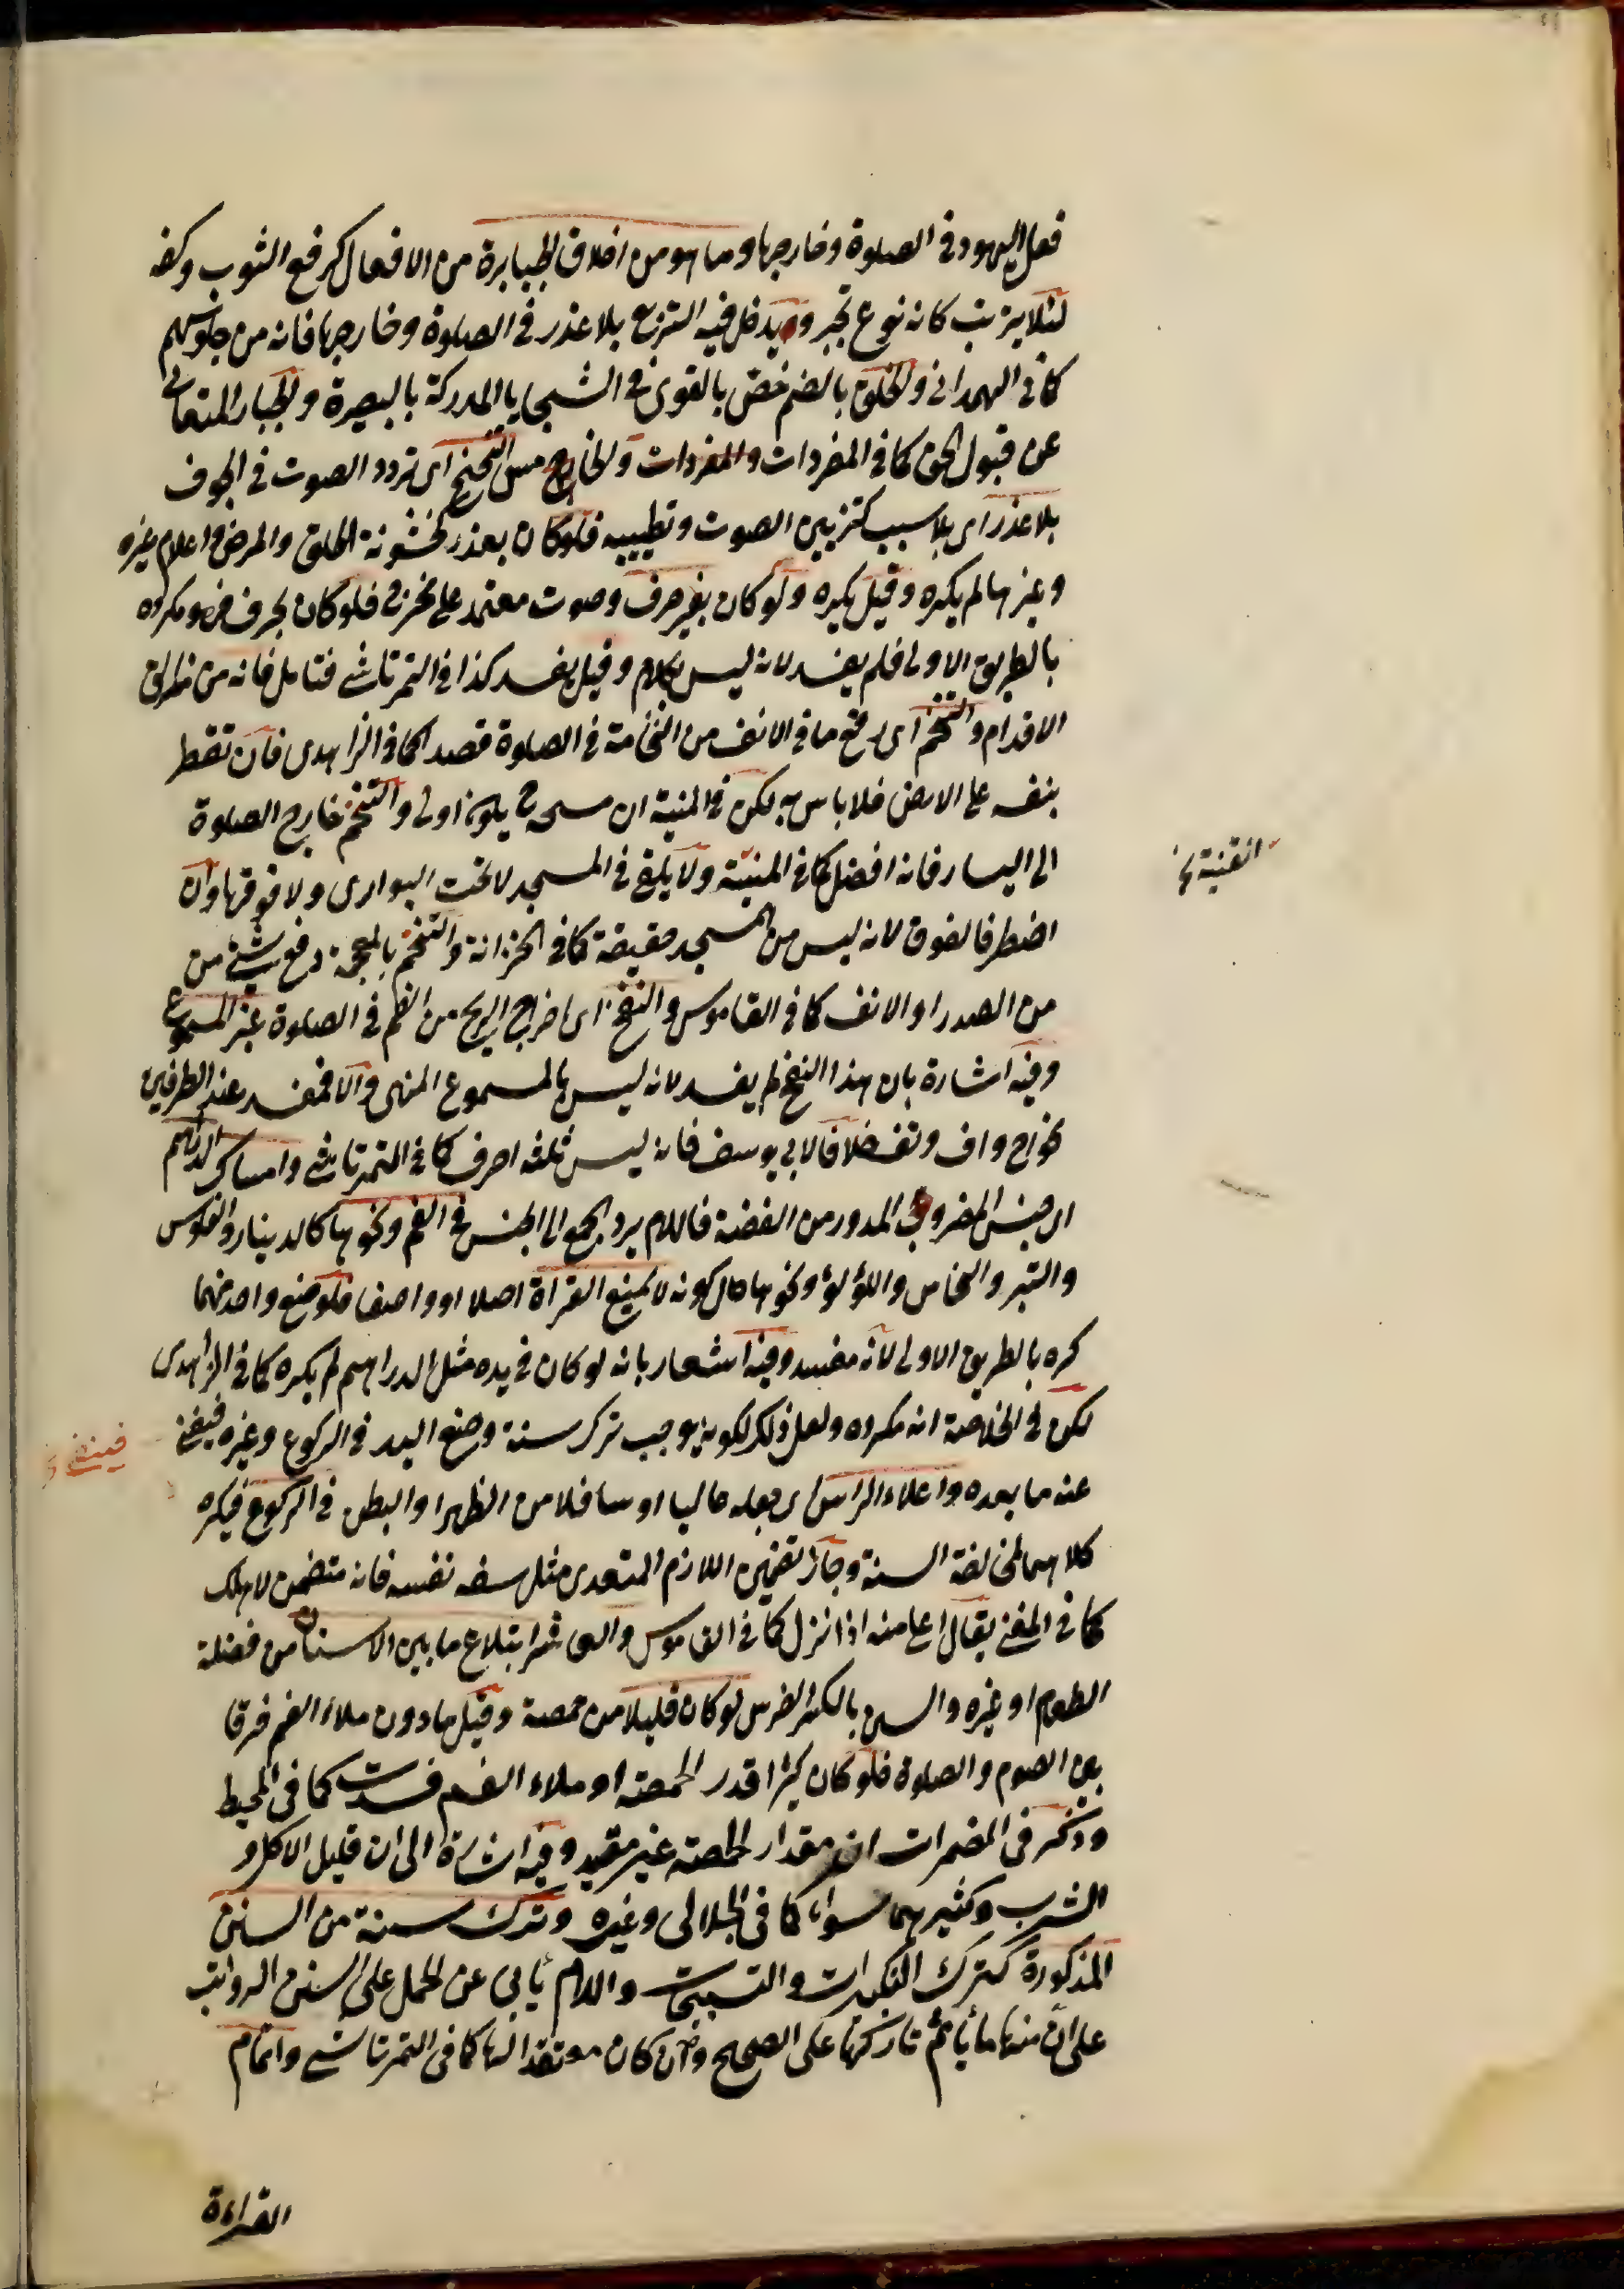 فعل اليهود في الصلوة وخارجها وما هو من اخلاق الجبابرة من الافعال كرفع الثوب وكفه
لئلا يترتب كانه نوع تجبر ويدخل فيه التربع بلا عذر في الصلوة وخارجها فانه من جلوسهم
كما في المهداني والخلق بالضم خص بالقوى في السجايا المدركة بالبصيرة والجبار المتعالى
عن قبول الحق كما في المفردات والمفردات والخارج من التنحنح اى تردد الصوت في الجوف
بلا عذر اى بلا سبب كتزيين الصوت وتطييبه فلو كان بعذر كخشونة الحلق والمرض واعلام غيره
وغيرها لم يكره وقيل يكره ولو كان بغير حرف وصوت معتمد على مخرج فلو كان بحرف فهو مكروه
بالطريق الاولى فلم يفسد لانه ليس بكلام وقيل يفسد كذا في التمرتاشى فتامل فانه من مزالق
الاقدام والتنخم اى رفع ما في الانف من النخامة في الصلوة قصدا كما في الزاهدى فان تقطر
بنفسه على الارض فلا باس به لكن في المنية ان مسحه اولى والتنخم خارج الصلوة
الى اليسار فانه افضل كما في المنية ولا يلقى في المسجد لا تحت البوارى ولا فوقها وان
اضطر فالفوق لانه ليس من المسجد حقيقة كما في الخزانة والتنخم بالمعجمة دفع شئ من
من الصدر او الانف كما في القاموس والنفخ اى اخراج الريح من الفم في الصلوة غير المسموع
وفيه اشارة بان هذا النفخ لم يفسد لانه ليس بالمسموع المنهى والا فمفسد عند الطرفين
نحو اح واف وتف خلافا لابى يوسف فانه ليس ثلثه احرف كما في التمرتاشى وامساك الدراهم
اى جنس المضروب المدور من الفضة فاللام يرد الجمع الى الجنس في الفم ونحوها كالدينار والفلوس
والتبر والنحاس واللؤلؤ ونحوها حال كونه لا يمنع القراة اصلا او واصفا فلو منع واحد منهما
كره بالطريق الاولى لانه مفسد وفيه اشعار بانه لو كان في يده مثل الدراهم لم يكره كما في الزاهدى
لكن في الخلاصة انه مكروه ولعل ذلك لكونه يوجب ترك سنة وضع اليد في الركوع وغيره فيغنى
عنه ما بعده واعلاء الراس اى جعله عاليا او سافلا من الظهر او البطن في الركوع فيكره
كلاهما لمخالفة السنة وجاز تضمين اللازم المتعدى مثل سفه نفسه فانه متضمن لاهلك
كما في المغنى يقال اعلى منه اذا نزل كما في القاموس والعاشر ابتلاع ما بين الاسنان من فضلة
الطعام او غيره والسن بالكسر الضرس لو كان قليلا من حمصة وقيل ما دون ملاء الفم فرقا
بين الصوم والصلوة فلو كان كثيرا قدر الحمصة او ملاء الفم فسدت كما في المحيط
وذكر في المضمرات ان مقدار الحمصة غير مقيد وفيه اشارة الى ان قليل الاكل و
الشرب وكثيرهما سواء كما في الجلالى وغيره وترك سنة من السنن
المذكورة كترك التكبيرات والتسبيحات واللام يأبى عن الحمل على السنن الرواتب
على ان منها ما يأثم تاركها على الصحيح وان كان معتقدا لها كما في التمرتاشى واتمام
القراءة
القنية نخ